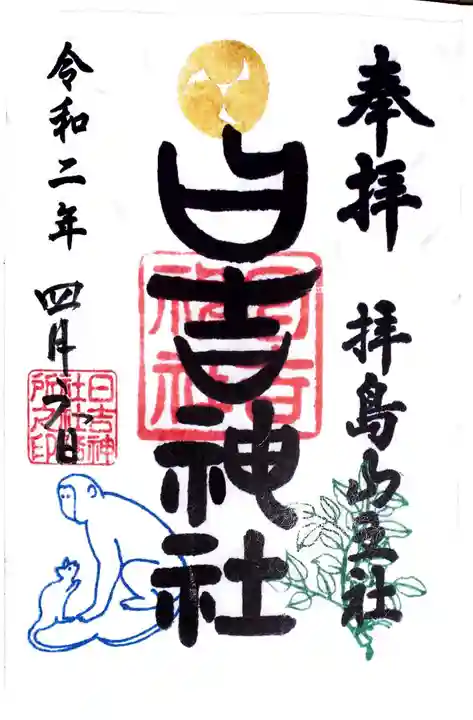 奉拝
拝島山王社
日吉神社
日吉神社
令和二年
四月六日
日吉神
社社務
所乃印